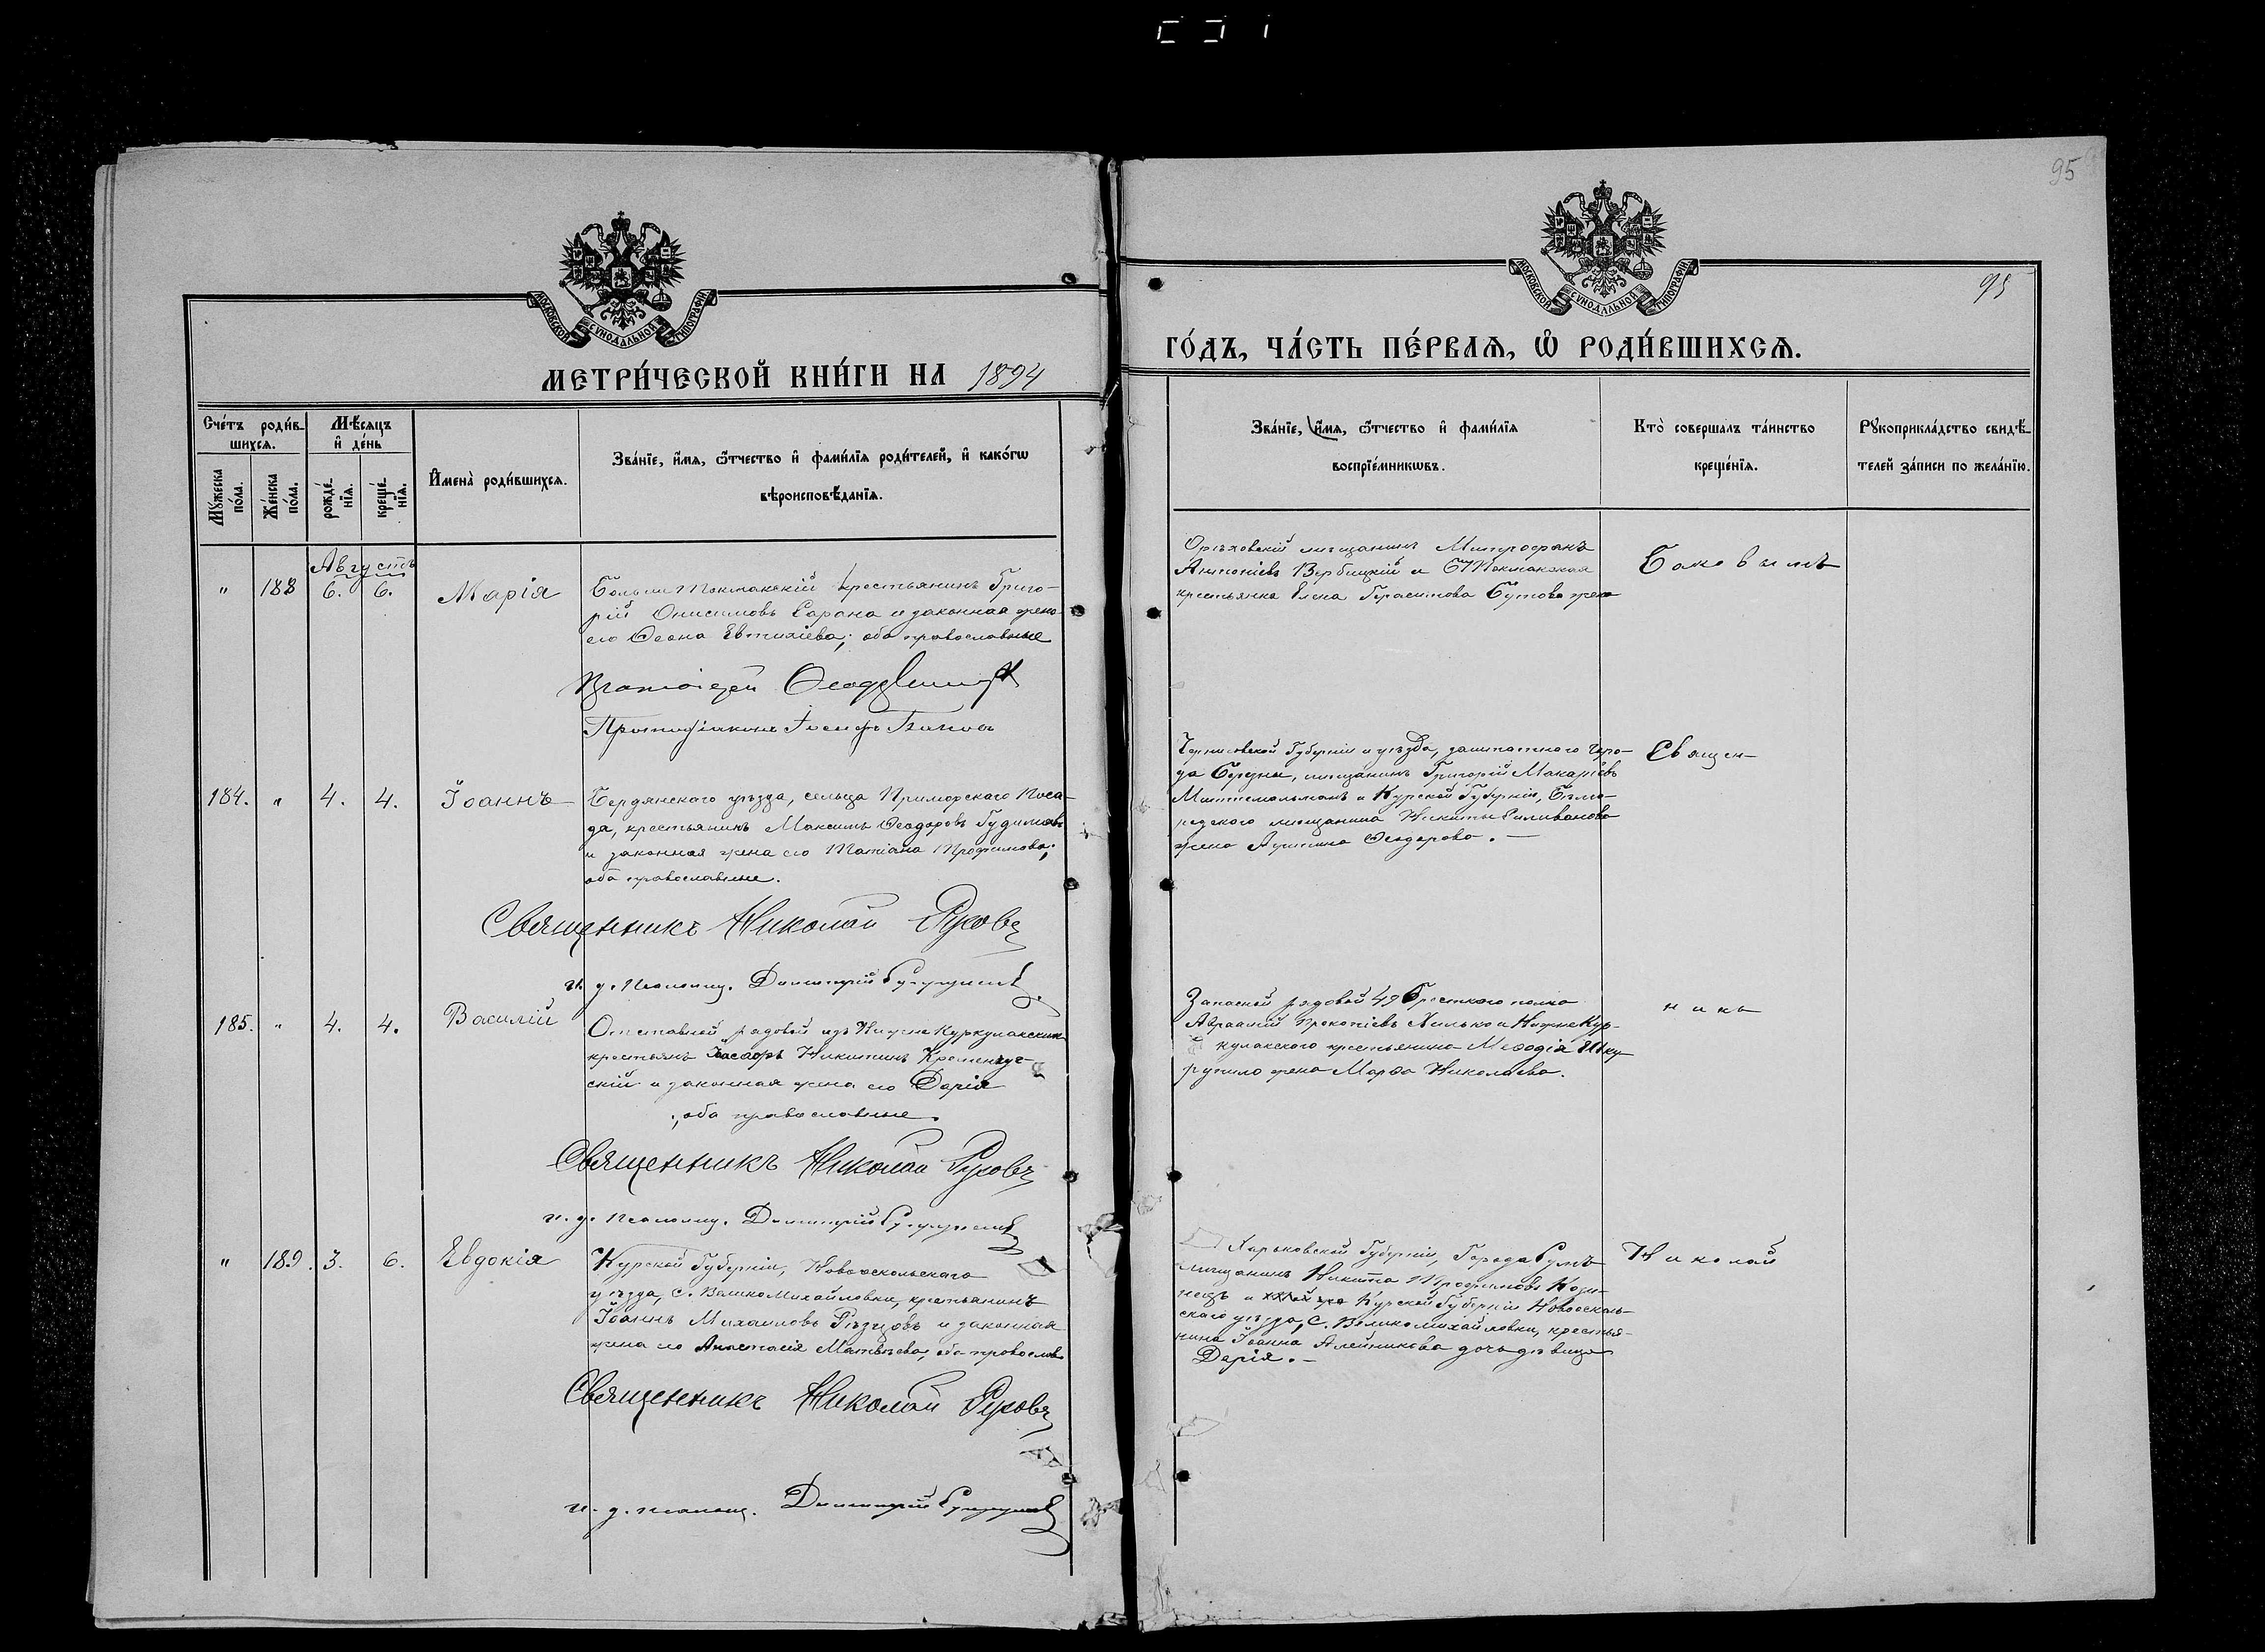 95
МОСКОВСКОЙ СѴНОДАЛЬНОЙ ТИПОГРАФІИ
МЕТРИ́ЧЕСКОЙ КНИ́ГИ НА 1894
Сче́тъ роди́в-
шихсѧ.
Мѣ́сѧцъ
и҆ де́нь
Мꙋ́жеска
по́ла.
Же́нска
по́ла.
рожде́-
нїѧ.
креще́-
нїѧ.
И҆мена̀ роди́вшихсѧ.
Зва́нїе, и҆́мѧ, ѻ҆́тчество и҆ фами́лїѧ роди́телей, и҆ како́гѡ
вѣроисповѣ́данїѧ.
Августъ
" 188 6. 6. Марія
Больше Токмакскій крестьянинъ Григо-
рій Онисимовъ Сарана и законная жена
его Ѳеона Евтихіева; оба православные
Протодіаконъ Іосифъ
184. " 4. 4. Іоаннъ
Бердянскаго уѣзда, сельца Приморскаго Поса-
да, крестьянинъ Максимъ Ѳеодоровъ Гудимовъ
и законная жена его Татіана Трофимова;
оба православные.
Священникъ Николай Руховъ
и. д. псаломщ. Димитрій
185. " 4. 4. Василій
Отставной рядовой изъ Нижне Куркулакскихъ
крестьянъ Никитинъ Кременчуг-
скій и законная жена его Дарія
; оба православные.
Священникъ Николай Руховъ
и. д. псаломщ. Димитрій
" 189. 3. 6. Евдокія
Курской Губерніи, Новооскольскаго
уѣзда, с. ВеликоМихайловки, крестьянинъ
Іоаннъ Михаиловъ Рѣзцовъ и законная
жена его Анастасія Матвѣева, оба православ
Священникъ Николай Руховъ
и. д. псаломщ. Димитрій
95
МОСКОВСКОЙ СѴНОДАЛЬНОЙ ТИПОГРАФІИ
ГО́ДЪ, ЧА́СТЬ ПЕ́РВАѦ, Ѡ҆ РОДИ́ВШИХСѦ.
Зва́нїе, и҆́мѧ, ѻ҆́тчество и҆ фами́лїѧ
воспрїе́мникѡвъ.
Кто̀ совершалъ та́инство
креще́нїѧ.
Рꙋкоприкла́дство свидѣ́-
телей за́писи по жела́нїю.
Орѣховскій мѣщанинъ Митрофанъ
Антоніевъ Вербицкій и Б. Токмакская
крестьянка Елена Герасимова Бутова жена
Черниговской Губерніи и уѣзда, заштатного горо-
да Березны, мѣщанинъ Григорій Макаріевъ
и Курской Губерніи, Бѣлго-
родского мѣщанина Никиты Силиванова
жена Ѳеодорова. —
Священ-
Запасной рядовой 49 Брестского полка
Авраамій Прокопіевъ Хилько и Нижне Кур-
кулакского крестьянина Меѳодія Шку-
рупило жена Марѳа Николаева.
никъ
Харьковской Губерніи, Города Сумъ
мѣщанинъ Никита Трофимовъ Кози-
нецъ и Курской Губерніи Новоосколь-
скаго уѣзда, с. Великомихайловки, крестья-
нина Іоанна Алейникова дочь дѣвица
Дарія. —
Николай